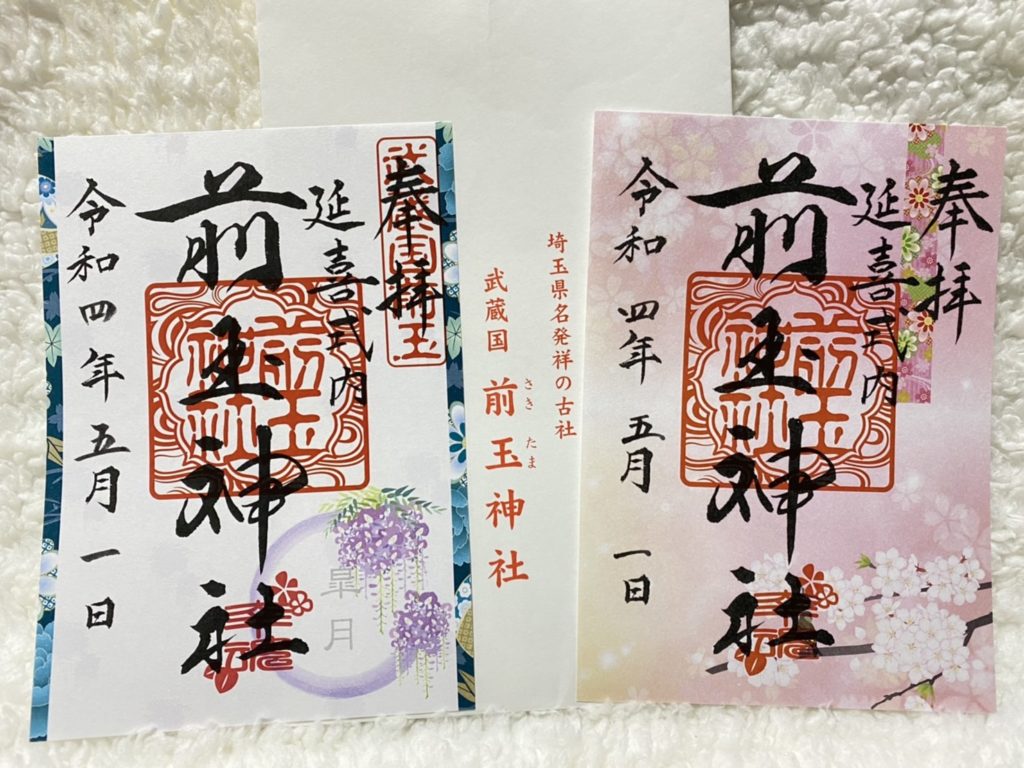 奉拝
延喜式内
前玉神社
令和四年五月一日
武蔵国前玉
前玉神社
皐月
埼玉県名発祥の古社
武蔵国 前玉神社
さきたま
奉拝
延喜式内
前玉神社
令和四年五月一日
前玉神社